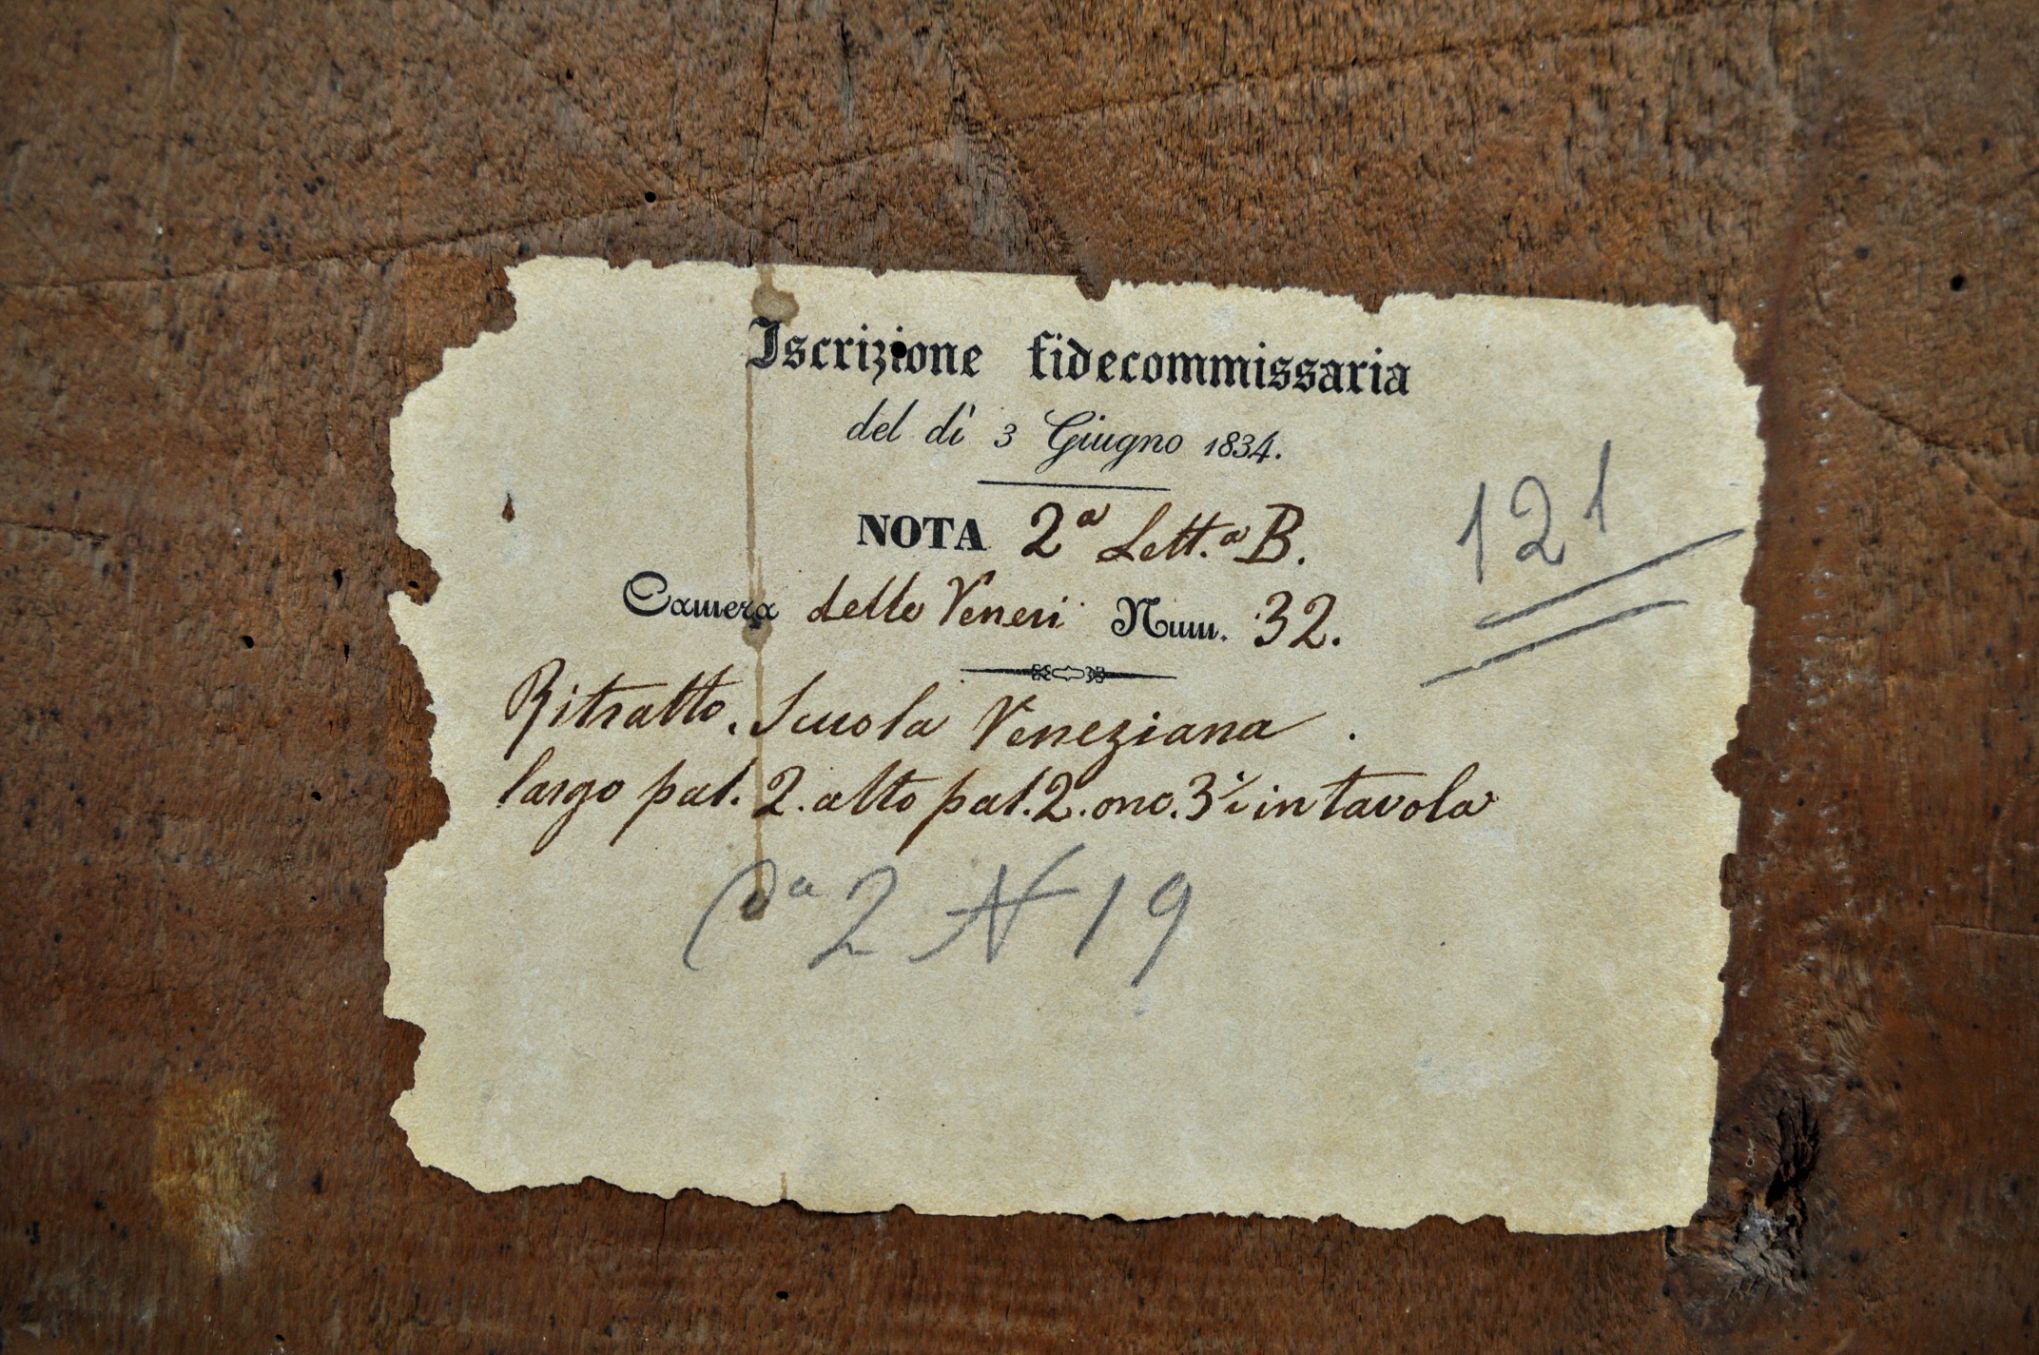 Iscrizione fidecommissaria
del dì 3 Giugno 1834.
NOTA 2ª Lett.ª B.
Camera delle Veneri Num. 32.
121
Ritratto. Scuola Veneziana.
largo pal. 2. alto pal. 2. onc. 3½ in tavola
2 N 19